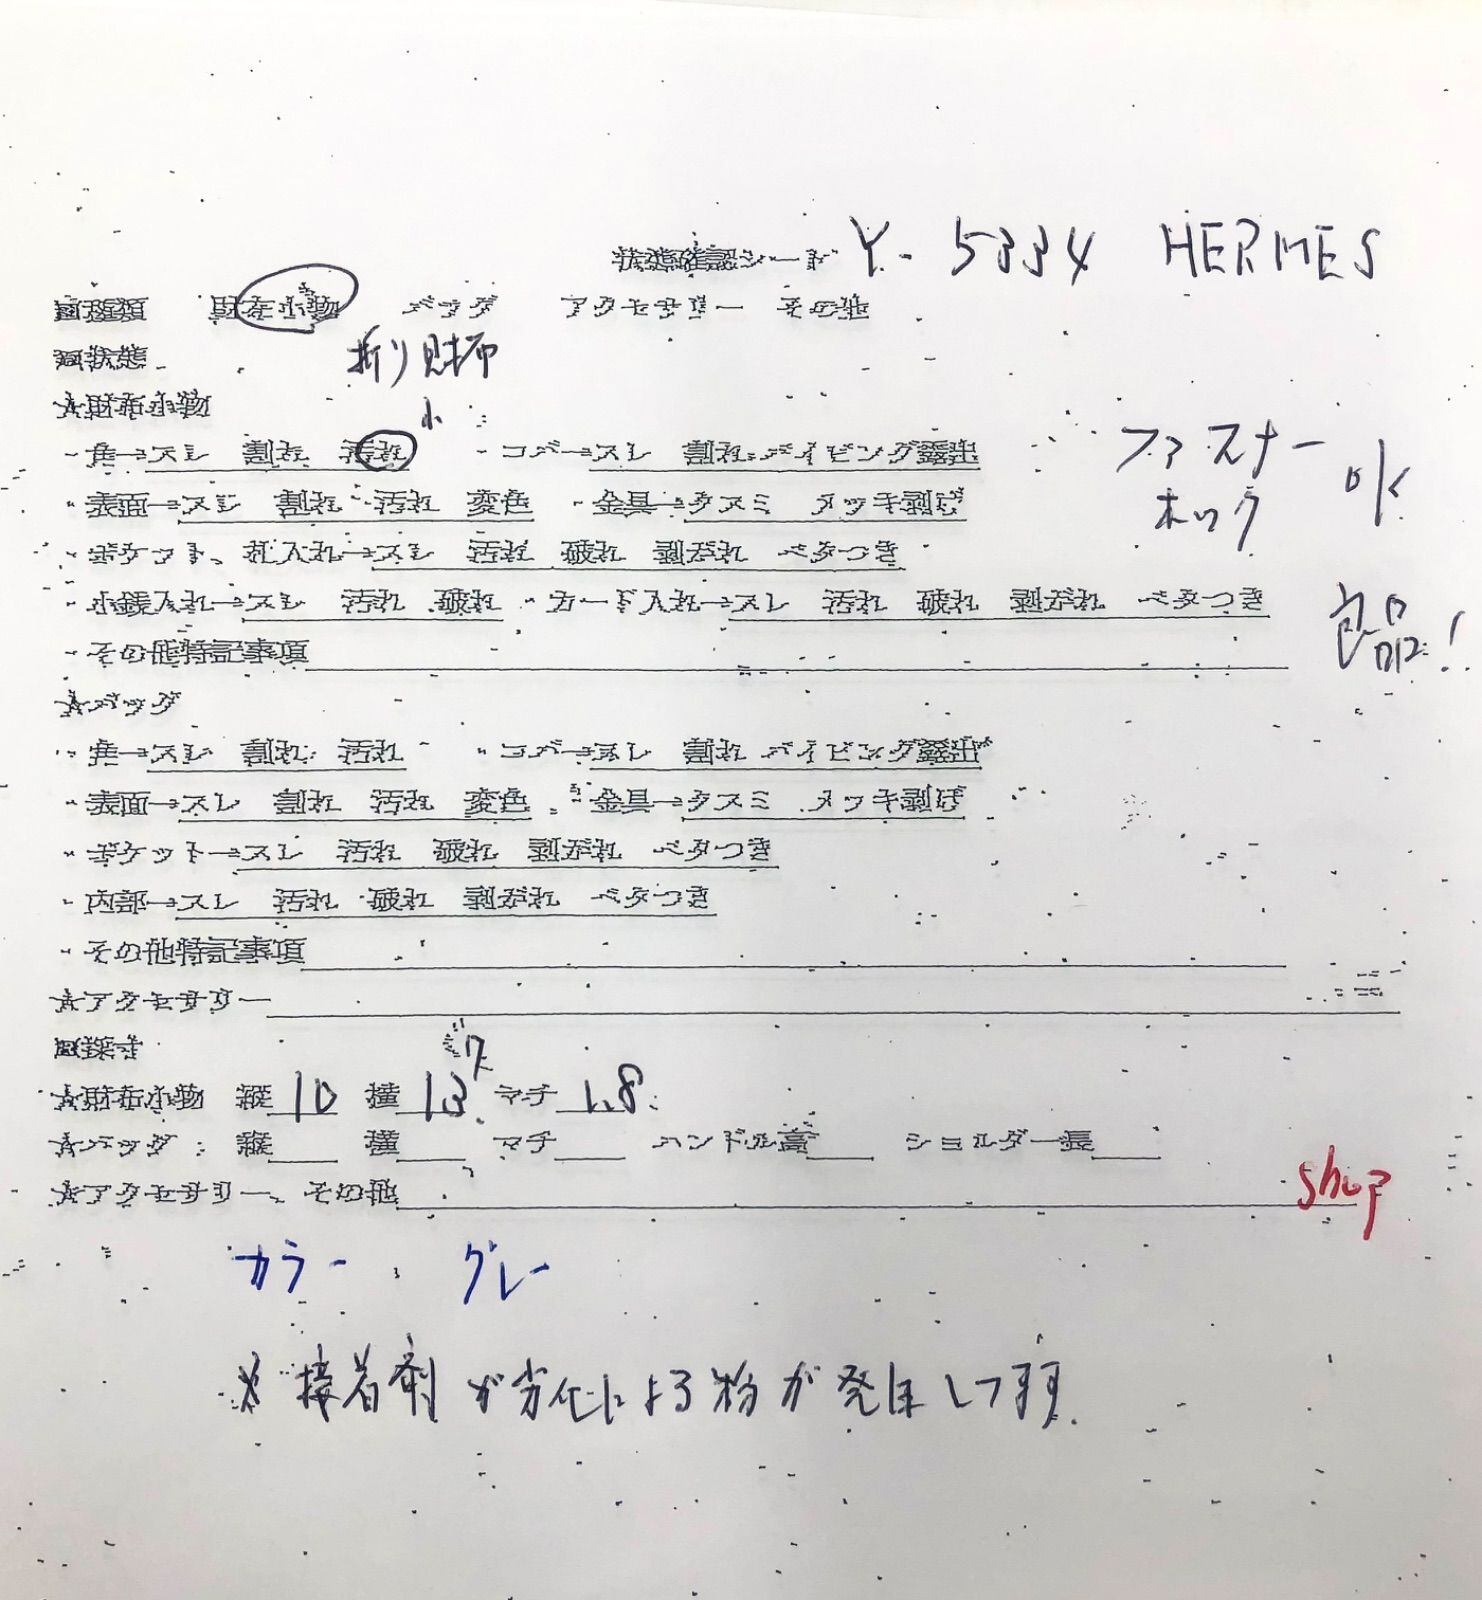 状態確認シート Y-5334 HERMES
■種類 財布小物 バッグ アクセサリー その他
■状態 折り財布
★財布小物 小
・角→スレ 割れ 汚れ ・コバ→スレ 割れ パイピング露出 ファスナー
・表面→スレ 割れ 汚れ 変色 ・金具→クスミ メッキ剥げ ホック OK
・ポケット、札入れ→スレ 汚れ 破れ 剥がれ ベタつき
・小銭入れ→スレ 汚れ 破れ ・カード入れ→スレ 汚れ 破れ 剥がれ ベタつき 良品!
・その他特記事項
★バッグ
・角→スレ 割れ 汚れ ・コバ→スレ 割れ パイピング露出
・表面→スレ 割れ 汚れ 変色 ・金具→クスミ メッキ剥げ
・ポケット→スレ 汚れ 破れ 剥がれ ベタつき
・内部→スレ 汚れ 破れ 剥がれ ベタつき
・その他特記事項
★アクセサリー
■採寸
★財布小物 縦 10 横 13 マチ 1.8
★バッグ 縦 横 マチ ハンドル高 ショルダー長
★アクセサリー、その他 shop
カラー グレー
※接着剤が劣化による粉が発生します